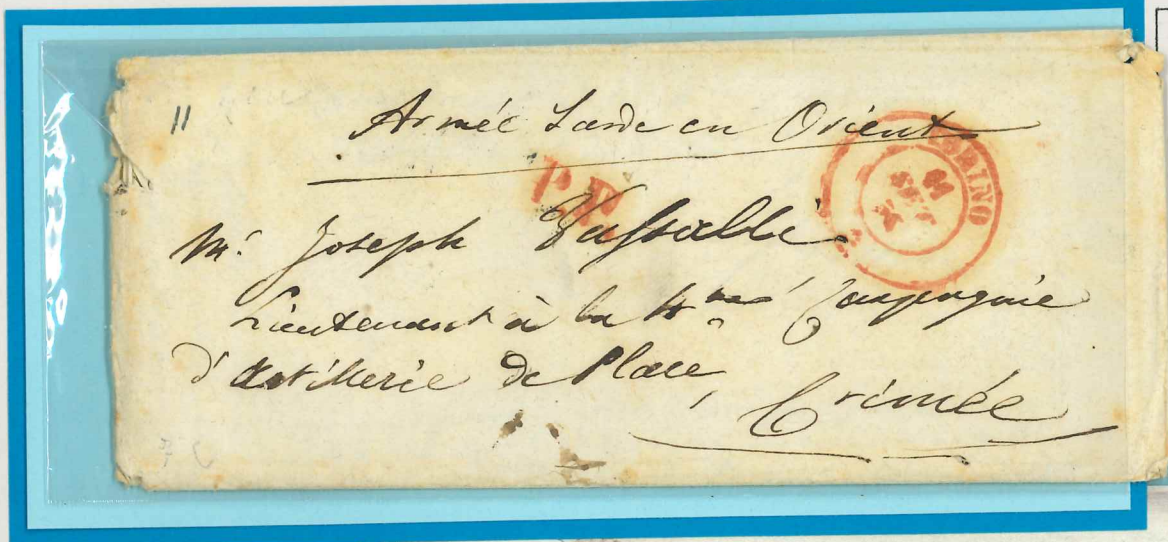 11
Armée Sarde en Orient
TORINO
11
SET
P.P.
Mr. Joseph Vassallo
Lieutenant à la 4me Compagnie
d'Artillerie de Place,
Crimée